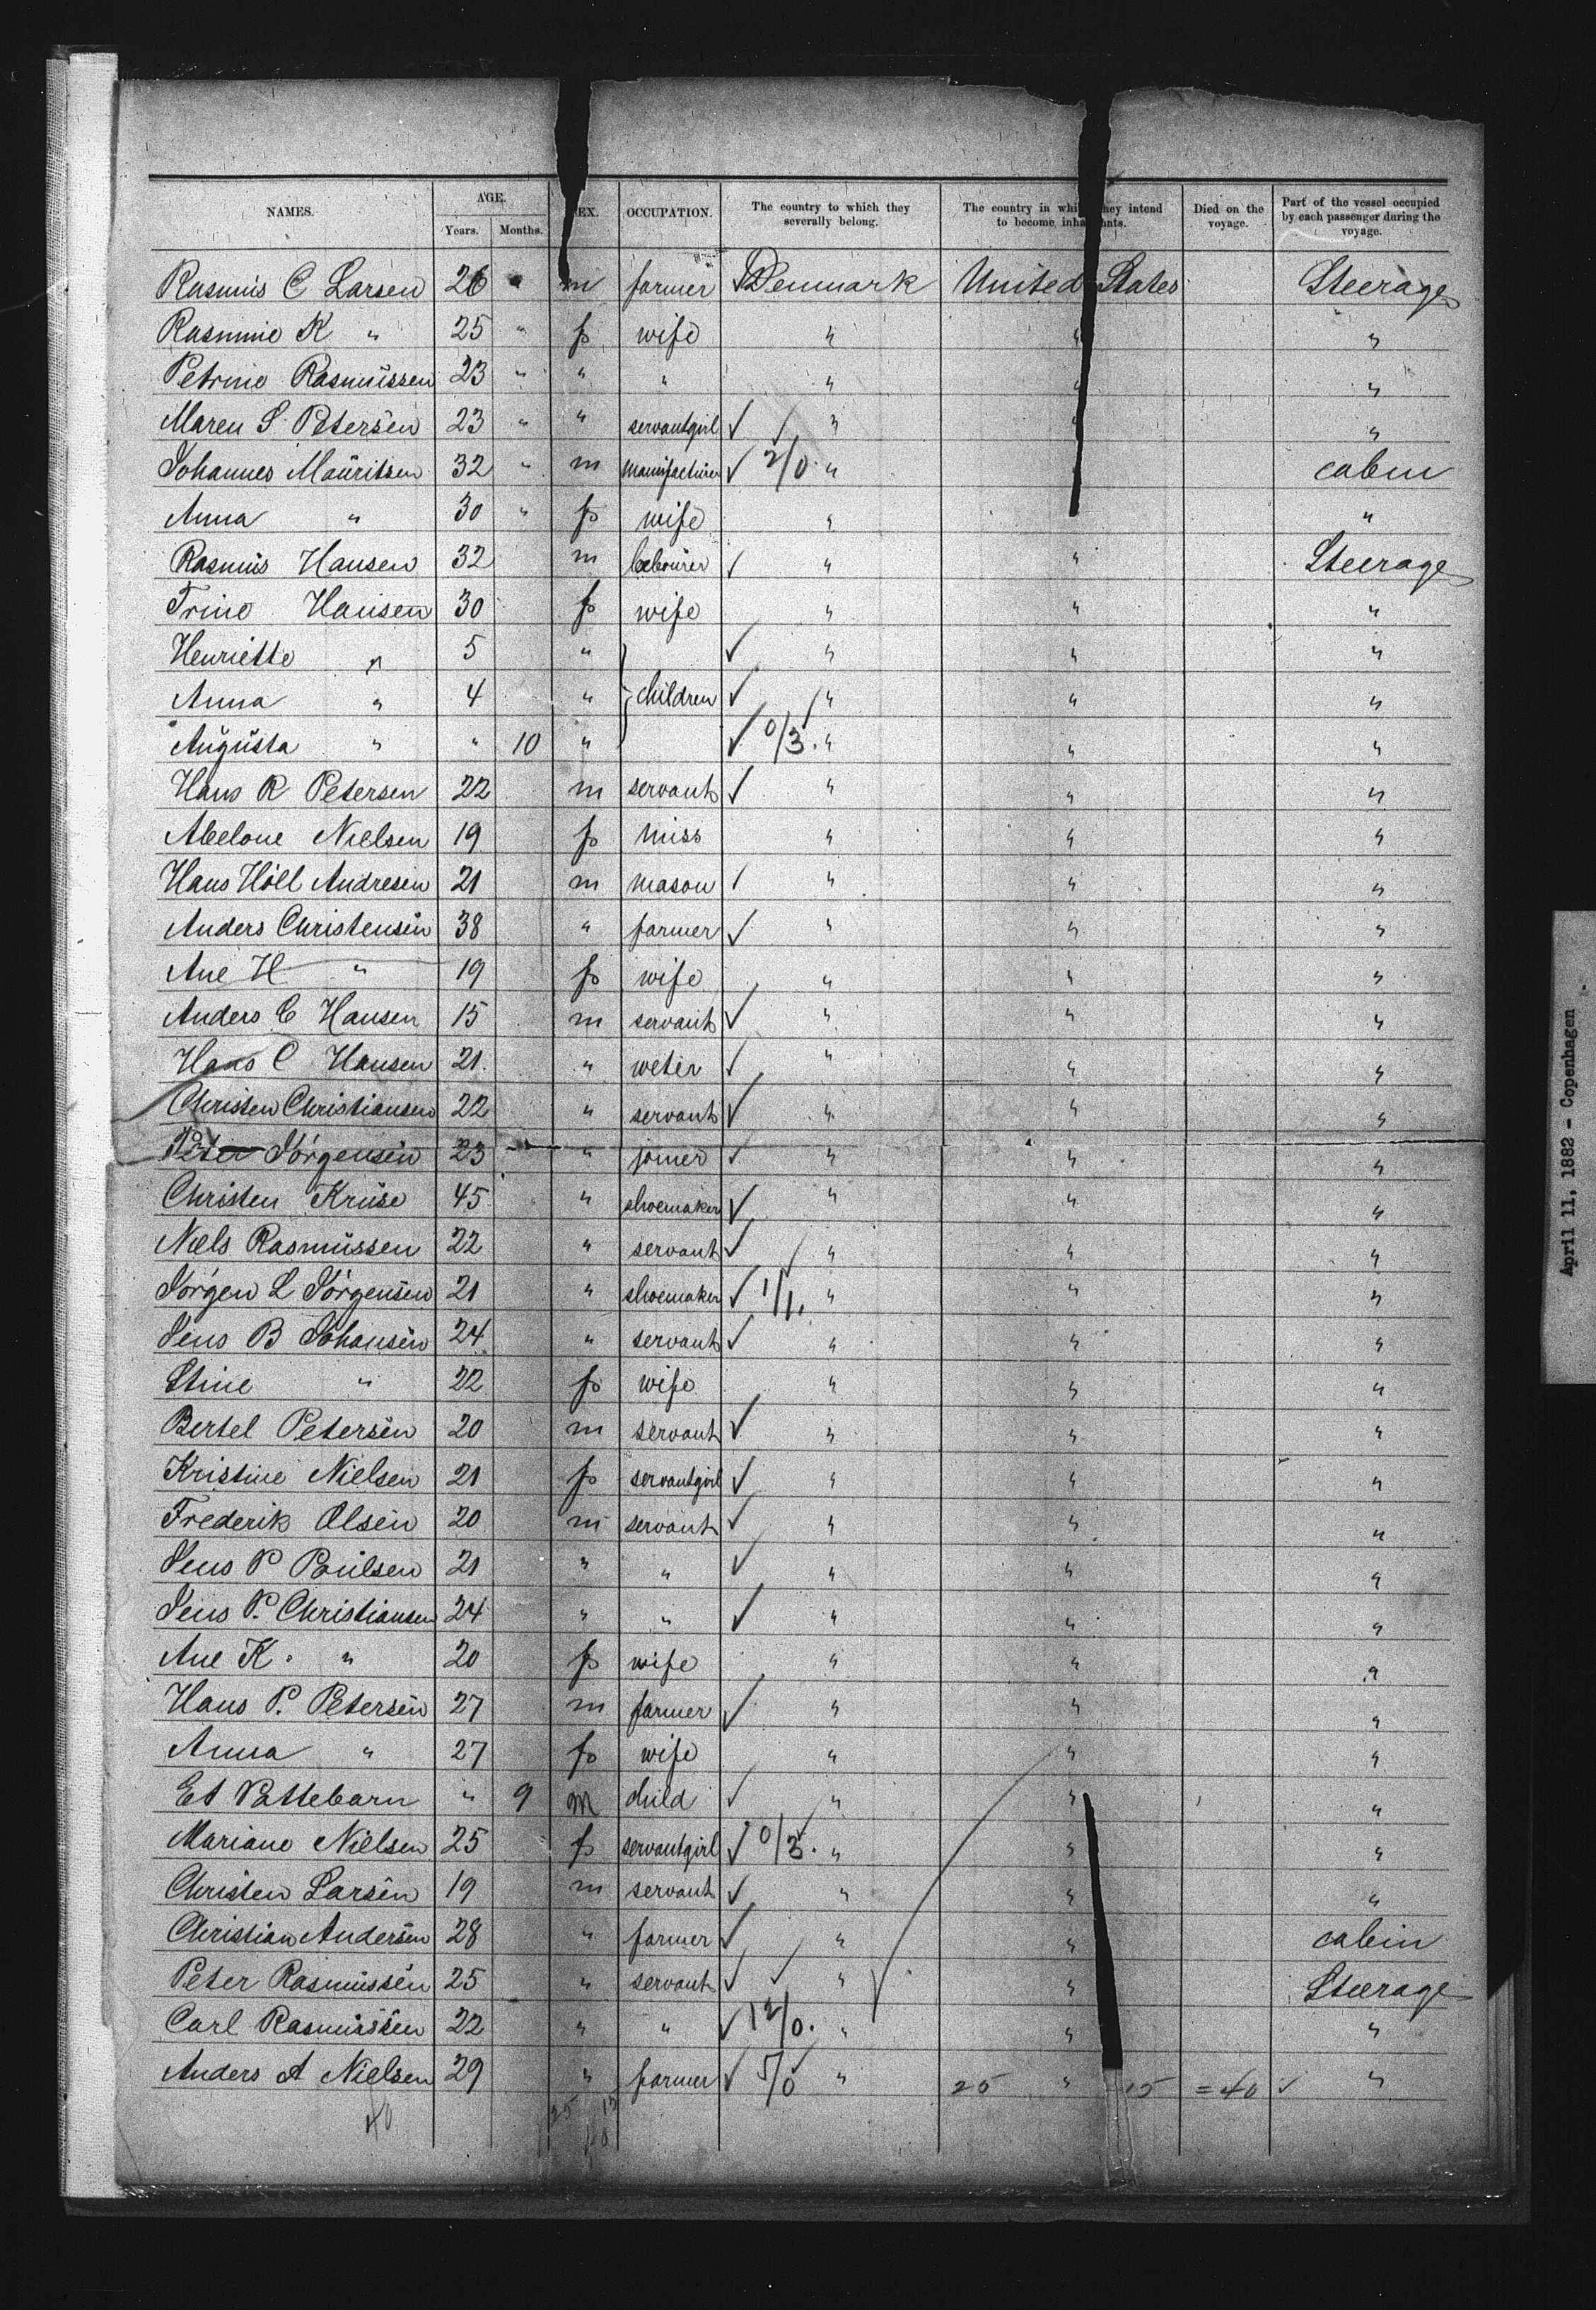 NAMES. AGE. SEX. OCCUPATION. The country to which they severally belong. The country in which they intend to become inhabitants. Died on the voyage. Part of the vessel occupied by each passenger during the voyage.
Years. Months.
Rasmus C Larsen 26 " m farmer Denmark United States Steerage
Rasmine K " 25 " f wife " " "
Petrine Rasmussen 23 " " " " " "
Maren S. Petersen 23 " " servantgirl ✓ " " "
Johannes Mauritsen 32 " m manufacturer ✓ 2/0 " " cabin
Anna " 30 " f wife " "
Rasmus Hansen 32 m labourer ✓ " " Steerage
Trine Hansen 30 f wife " " "
Henriette " 5 " ✓ " " "
Anna " 4 " children ✓ " " "
Augusta " " 10 " ✓ 0/3. " " "
Hans R Petersen 22 m servant ✓ " " "
Abelone Nielsen 19 f miss " " "
Hans Höll Andresen 21 m mason ✓ " " "
Anders Christensen 38 " farmer ✓ " " "
Ane H " 19 f wife " " "
Anders C Hansen 15 m servant ✓ " " "
Hans C Hansen 21. " ✓ " " "
Christen Christiansen 22 " servant ✓ " " "
Peter Jörgensen 23 " joiner ✓ " " "
Christen Kruse 45 " shoemaker ✓ " " "
Niels Rasmussen 22 " servant ✓ " " "
Jörgen L Jörgensen 21 " shoemaker ✓ 1/1. " " "
Jens B Johansen 24 " servant ✓ " " "
Stine " 22 f wife " " "
Bertel Petersen 20 m servant ✓ " " "
Kristine Nielsen 21 f servantgirl ✓ " " "
Frederik Olsen 20 m servant ✓ " " "
Jens P Poulsen 21 " " ✓ " " "
Jens P. Christiansen 24 " " ✓ " " "
Ane K. " 20 f wife " " "
Hans P. Petersen 27 m farmer ✓ " " "
Anna " 27 f wife " " "
Et Pattebarn " 9 m child ✓ " " "
Mariane Nielsen 25 f servantgirl ✓ 0/3. " " "
Christen Larsen 19 m servant ✓ " " "
Christian Andersen 28 " farmer ✓ " " cabin
Peter Rasmussen 25 " servant ✓ " " Steerage
Carl Rasmussen 22 " " ✓ 12/0. " " "
Anders A Nielsen 29 " farmer ✓ 5/0 " 25 " 15 = 40 ✓ "
40 25 15
April 11, 1882 - Copenhagen